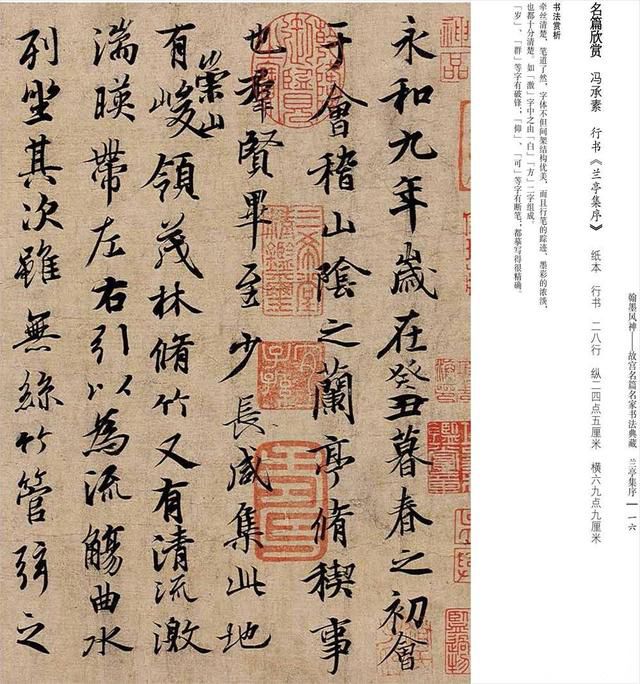 翰墨风神——故宫名篇名家书法典藏 兰亭集序 一六
名篇欣赏 冯承素 行书《兰亭集序》 纸本 行书 二八行 纵二四点五厘米 横六九点九厘米
书法赏析
牵丝清楚，笔道了然，字体不但间架结构优美，而且行笔的踪迹、墨彩的浓淡，
也都十分清楚。如「激」字中之由「白」「方」二字组成。
「岁」、「群」等字有破锋；「仰」、「可」等字有断笔；都摹写得很精确。
永和九年歲在癸丑暮春之初會
于會稽山陰之蘭亭脩稧事
也羣賢畢至少長咸集此地
有崇山峻領茂林脩竹又有清流激
湍暎帶左右引以為流觴曲水
列坐其次雖無絲竹管弦之